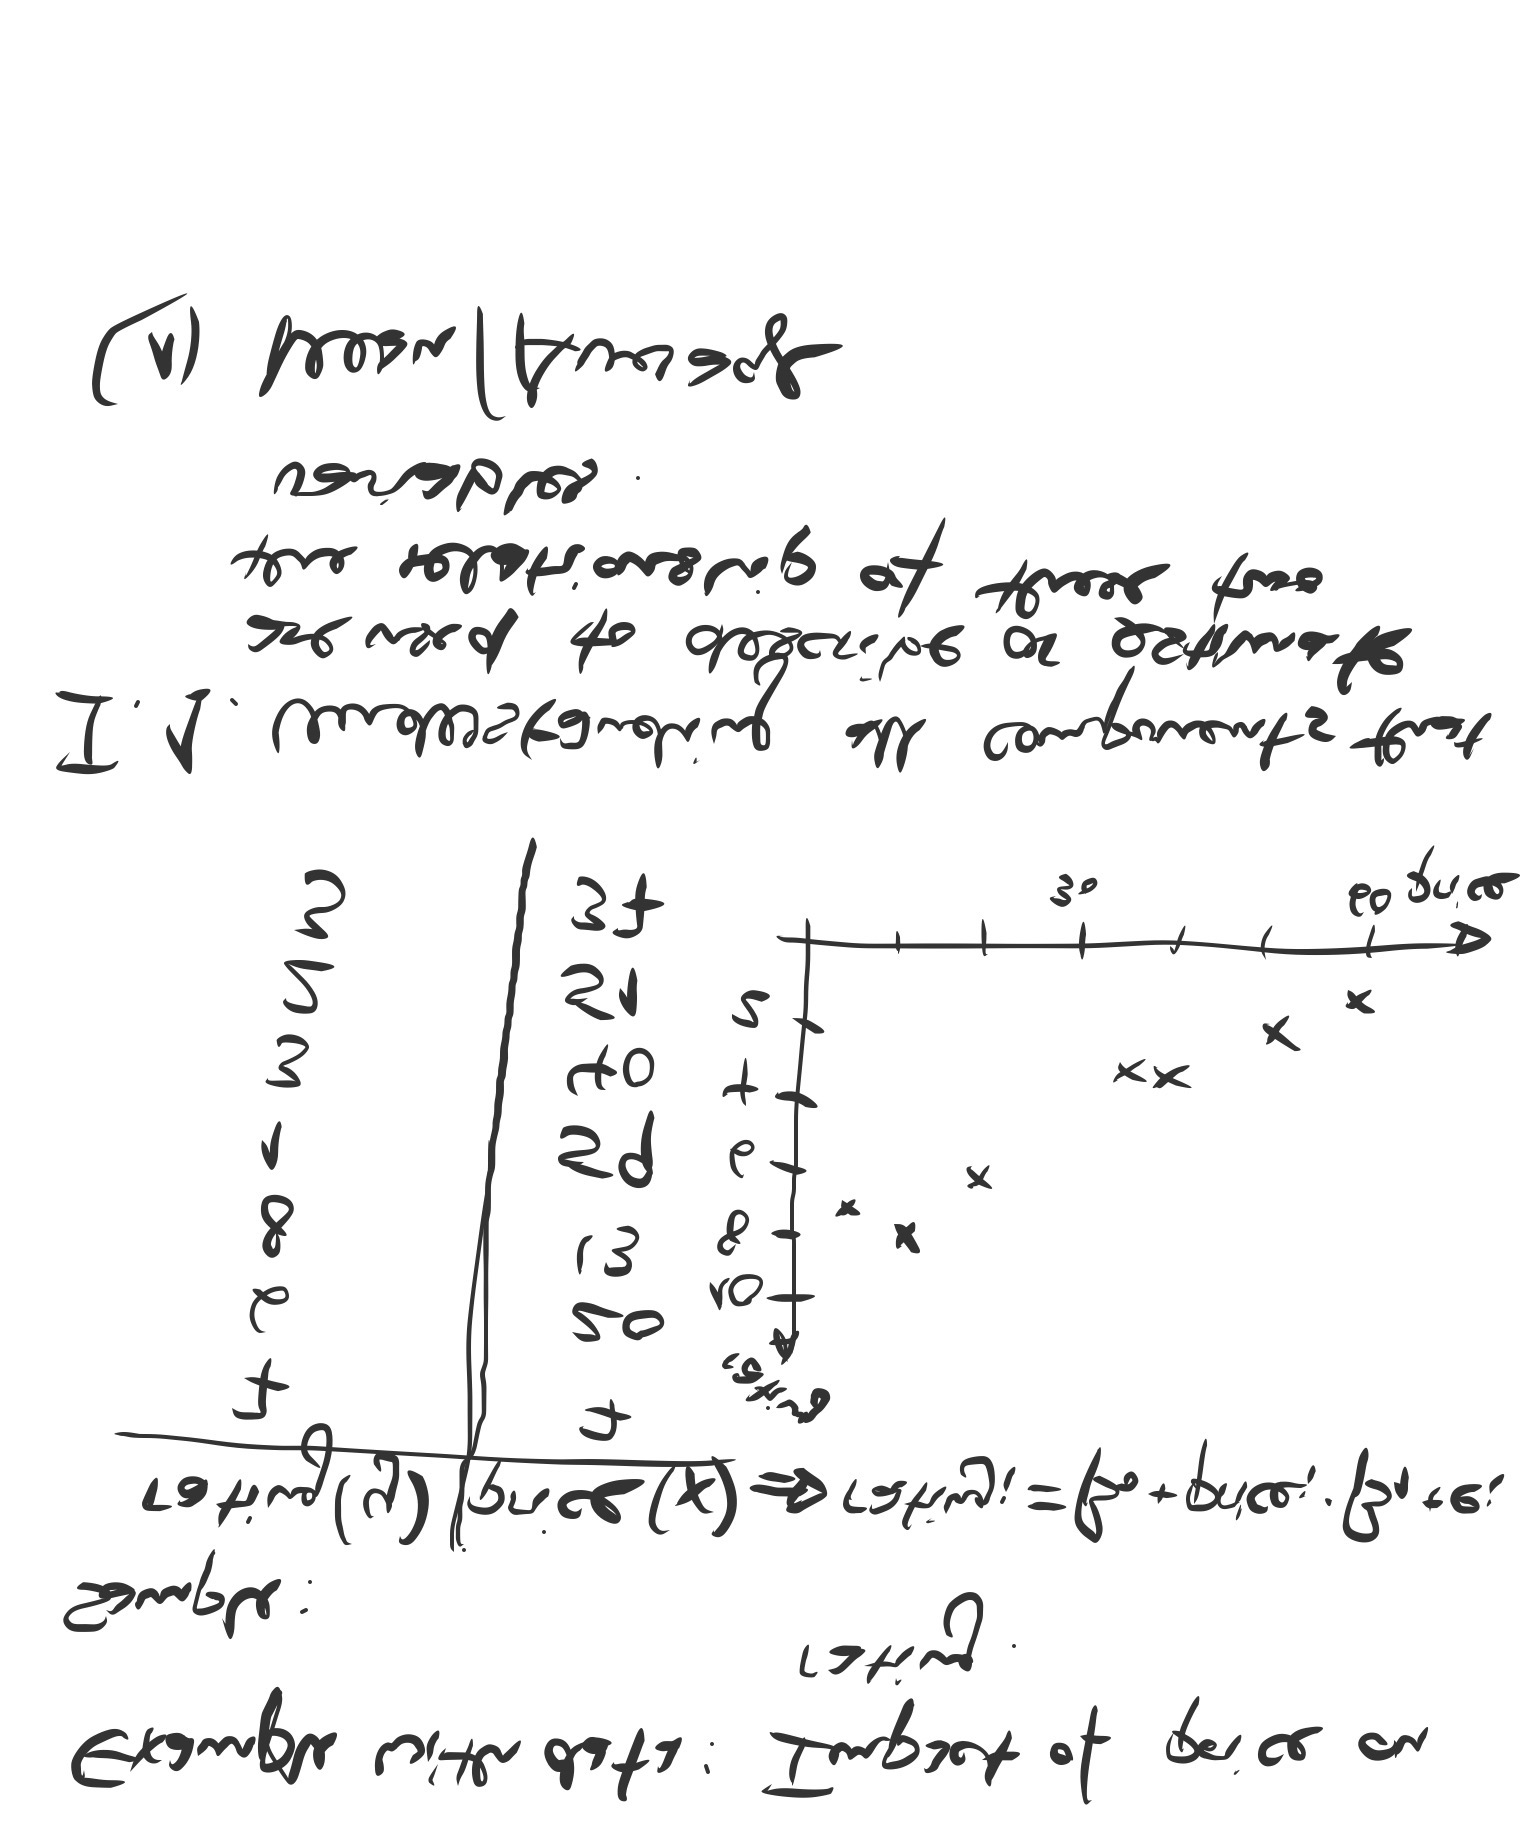 Example with data: Impact of price on
rating.
Sample:
rating(y) | price(x) ⇒ rating_i = β_0 + price_i · β_1 + e_i
7 7
6 20
8 13
1 59
3 40
2 51
3 37
rating
10
8
6
4
2
30 60 price
I.1. Understanding all components that
are used to describe or estimate
the relationship of these two
variables.
(1) Mean/Average